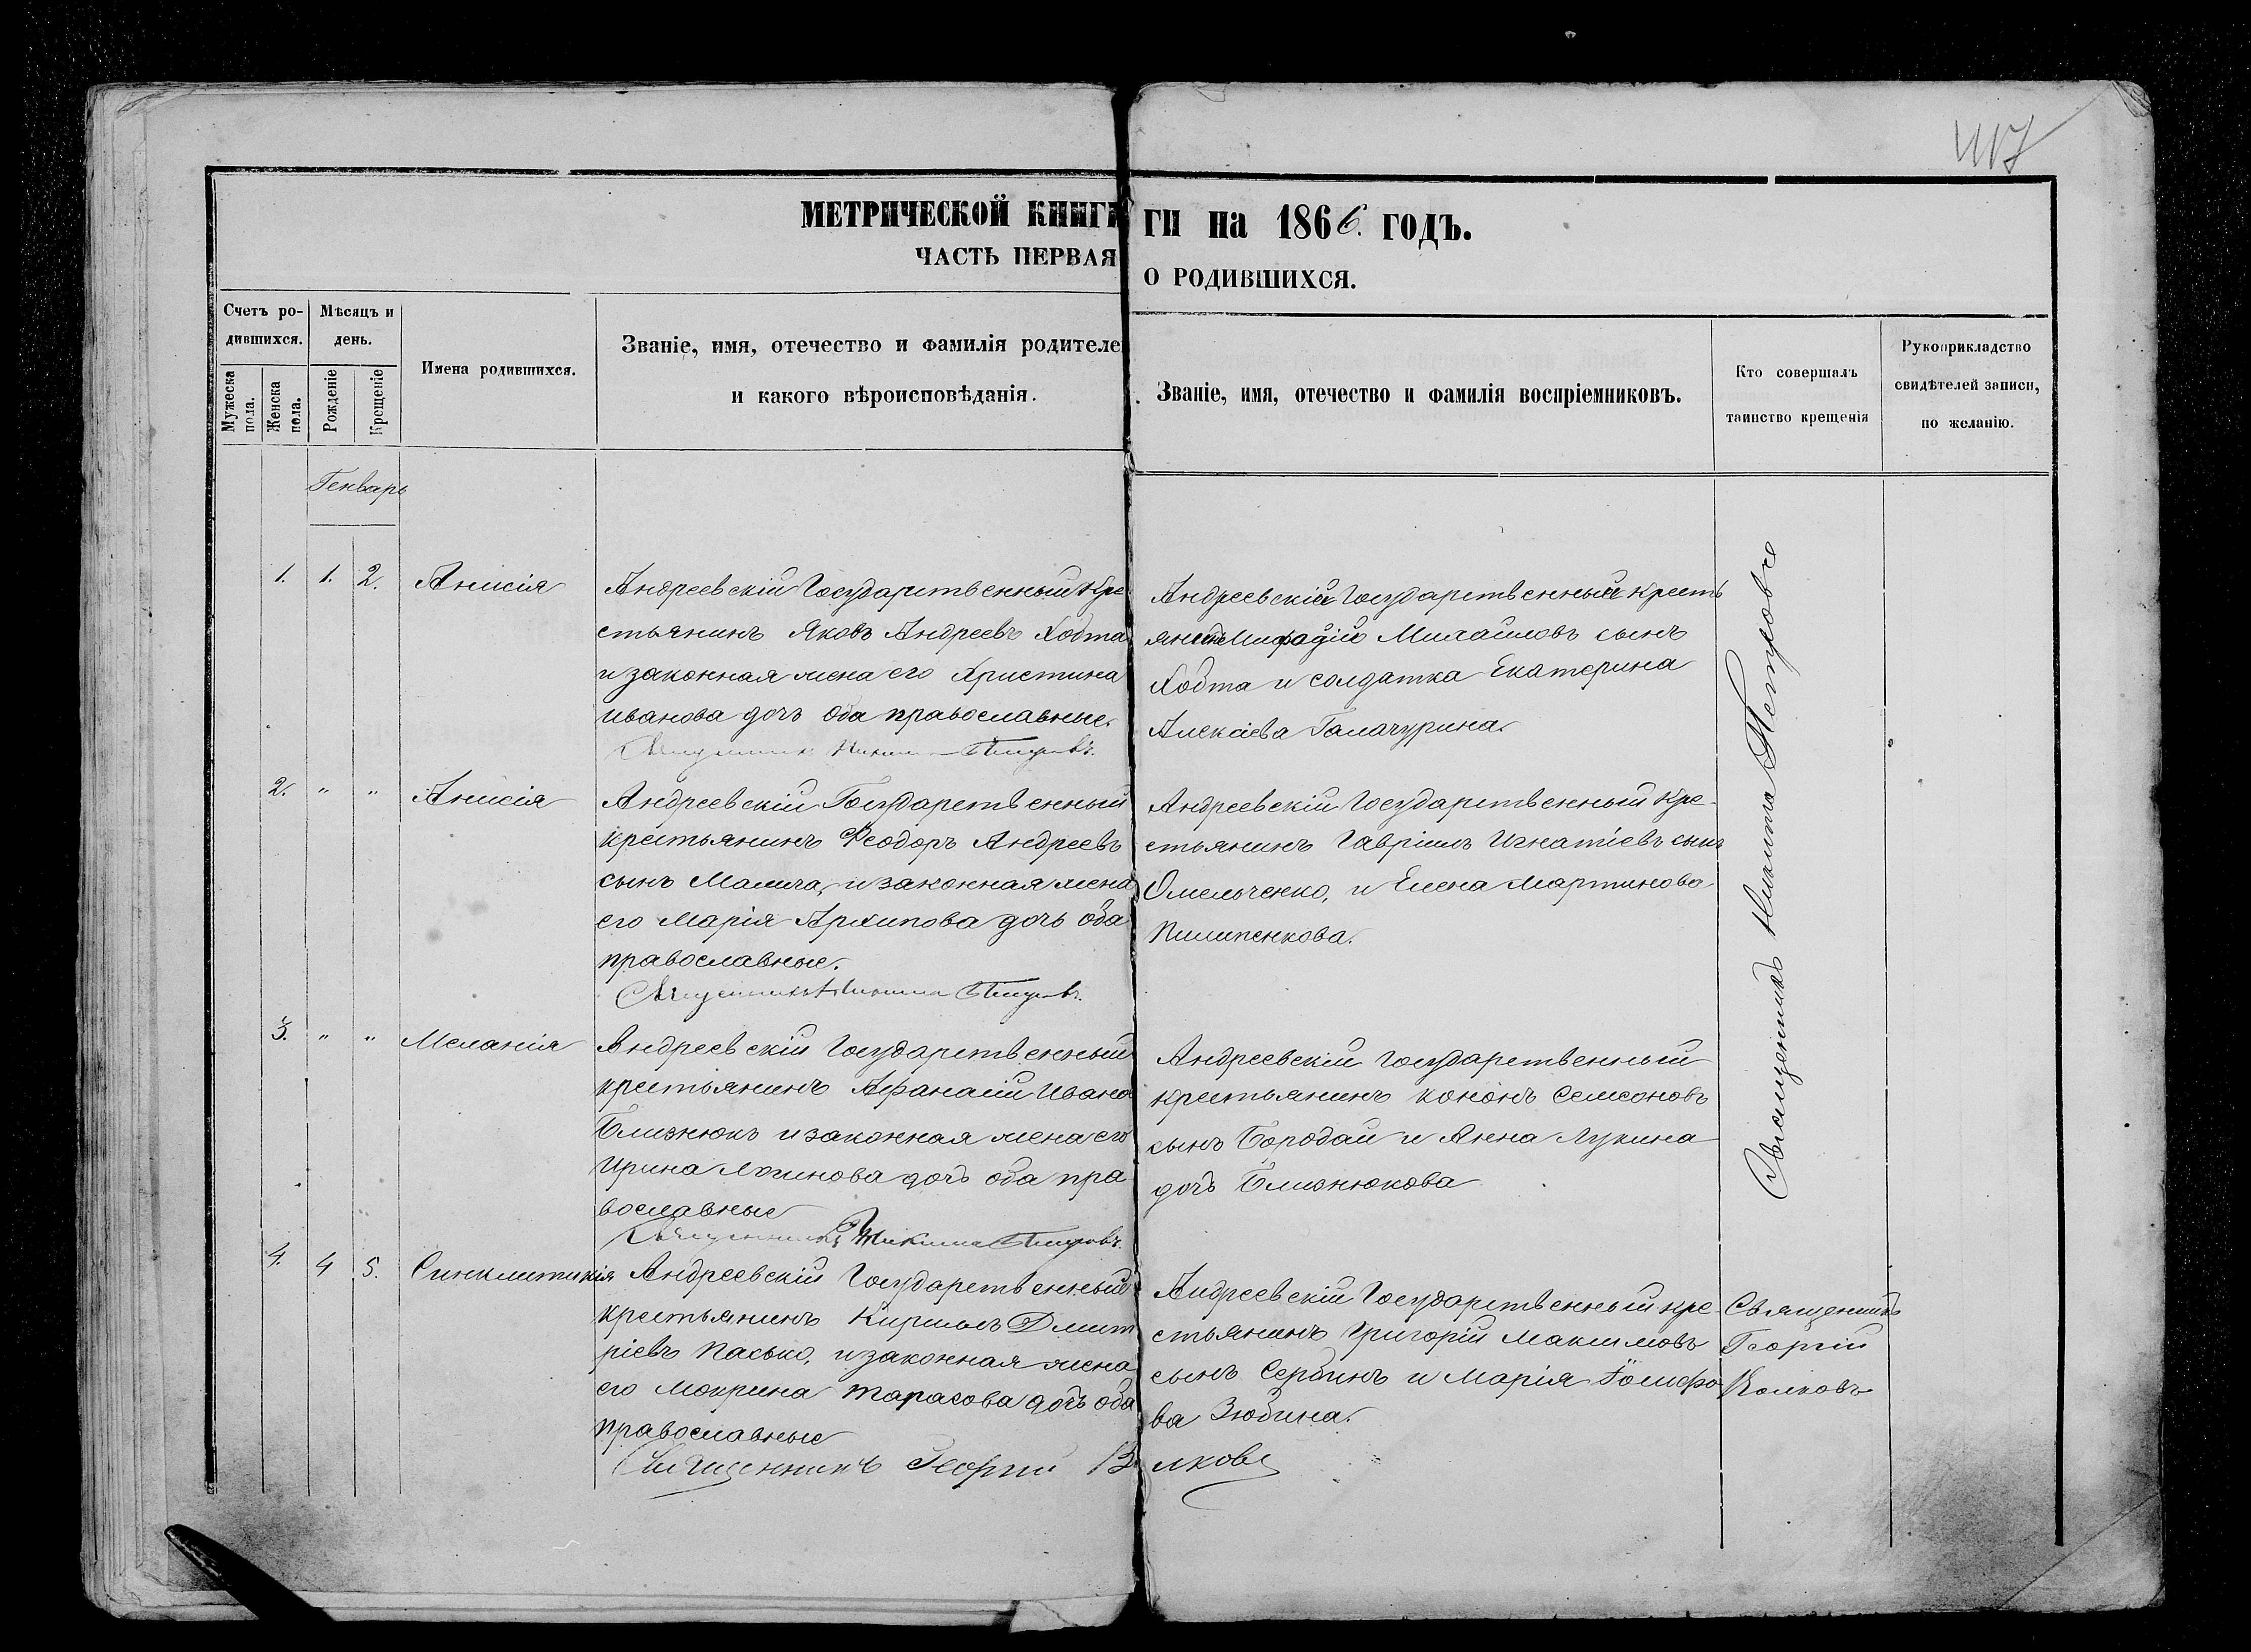 417
МЕТРИЧЕСКОЙ КНИГИ
ГИ на 1866. ГОДЪ.
ЧАСТЬ ПЕРВАЯ
О РОДИВШИХСЯ.
Счетъ ро-
дившихся.
Мужеска
пола.
Женска
пола.
Мѣсяцъ и
день.
Рожденіе
Крещеніе
Имена родившихся.
Званіе, имя, отечество и фамилія родителе
и какого вѣроисповѣданія.
Званіе, имя, отечество и фамилія воспріемниковъ.
Кто совершалъ
таинство крещенія
Рукоприкладство
свидѣтелей записи,
по желанію.
Генварь
1. 1. 2. Анисія
Андреевскій Государственный кре
стьянинъ Яковъ Андреевъ Ховта
и законная жена его Христина
Иванова дочь оба православные.
Священникъ Никита Петровъ.
Андреевскій Государственный кресть
янинъ Михайловъ сынъ
Ховта и солдатка Екатерина
Алексіева Галачурина.
2. " " Анисія
Андреевскій Государственный
крестьянинъ Феодоръ Андреевъ
сынъ и законная жена
его Марія Архипова дочь оба
православные.
Священникъ Никита Петровъ.
Андреевскій Государственный кре-
стьянинъ Гавріилъ Игнатіевъ сынъ
Омельченко, и Елена Мартинова
Пилипенкова.
3. " " Меланія
Андреевскій Государственный
крестьянинъ Афанасій Ивано
Близнюкъ и законная жена его
Ирина Логинова дочь оба пра
вославные
Священникъ Никита Петровъ.
Андреевскій Государственный
крестьянинъ Кононъ Семеоновъ
сынъ Бородай и Анна Лукина
дочь Близнюкова
Священникъ Никита Петровъ
4. 4 5. Синклитикія
Андреевскій Государственный
крестьянинъ Кирилъ Дмит
ріевъ Пасько, и законная жена
его Мокрина Тарасова дочь оба
православные
Священникъ Георгій В
лковъ
Андреевскій Государственный кре
стьянинъ Григорій Максимовъ
сынъ Сербинъ и Марія Іосифо
ва Зюбина.
Священникъ
Георгій
Волковъ